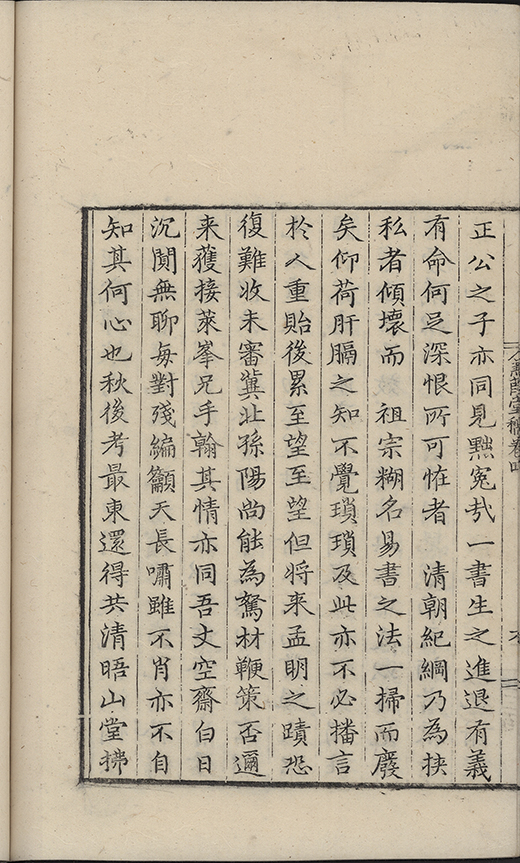 正公之子亦同見黜冤哉一書生之進退有義
有命何足深恨所可恠者　清朝紀綱乃為挾
私者傾壞而　祖宗糊名易書之法一掃而廢
矣仰荷肝膈之知不覺瑣瑣及此亦不必播言
於人重貽後累至望至望但将来孟明之蹟恐
復難收未審冀北孫陽尚能為駑材鞭策否邇
来獲接萊峯兄手翰其情亦同吾丈空齋白日
沉閴無聊每對殘編籲天長嘯雖不肖亦不自
知其何心也秋後考最東還得共清晤山堂拂